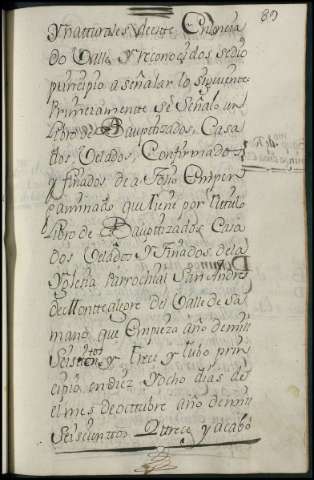 89
Y natturales de este Conceja
do Valle Y reconocidos se dio
principio a señalar lo siguiente
Primeramente se señalo un
Libro de Bauptizados, Casa
dos, Velados, Confirmados,
y finados de a folio Emper
gaminado que tiene por titulo
Libro de Bauptizados Casa
dos Velados Y finados de la
Yglesia Parrochial San Andres
de Montealegre del Valle de Sa
mano que Empieza año de mill
Seiscientos y trece y tubo prin
cipio en diez y ocho dias de
el mes de octubre año de mill
Seiscientos y trece y acabo